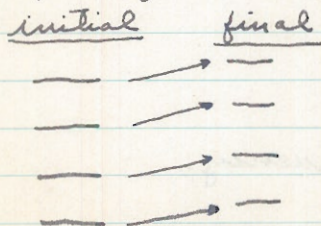 initial final